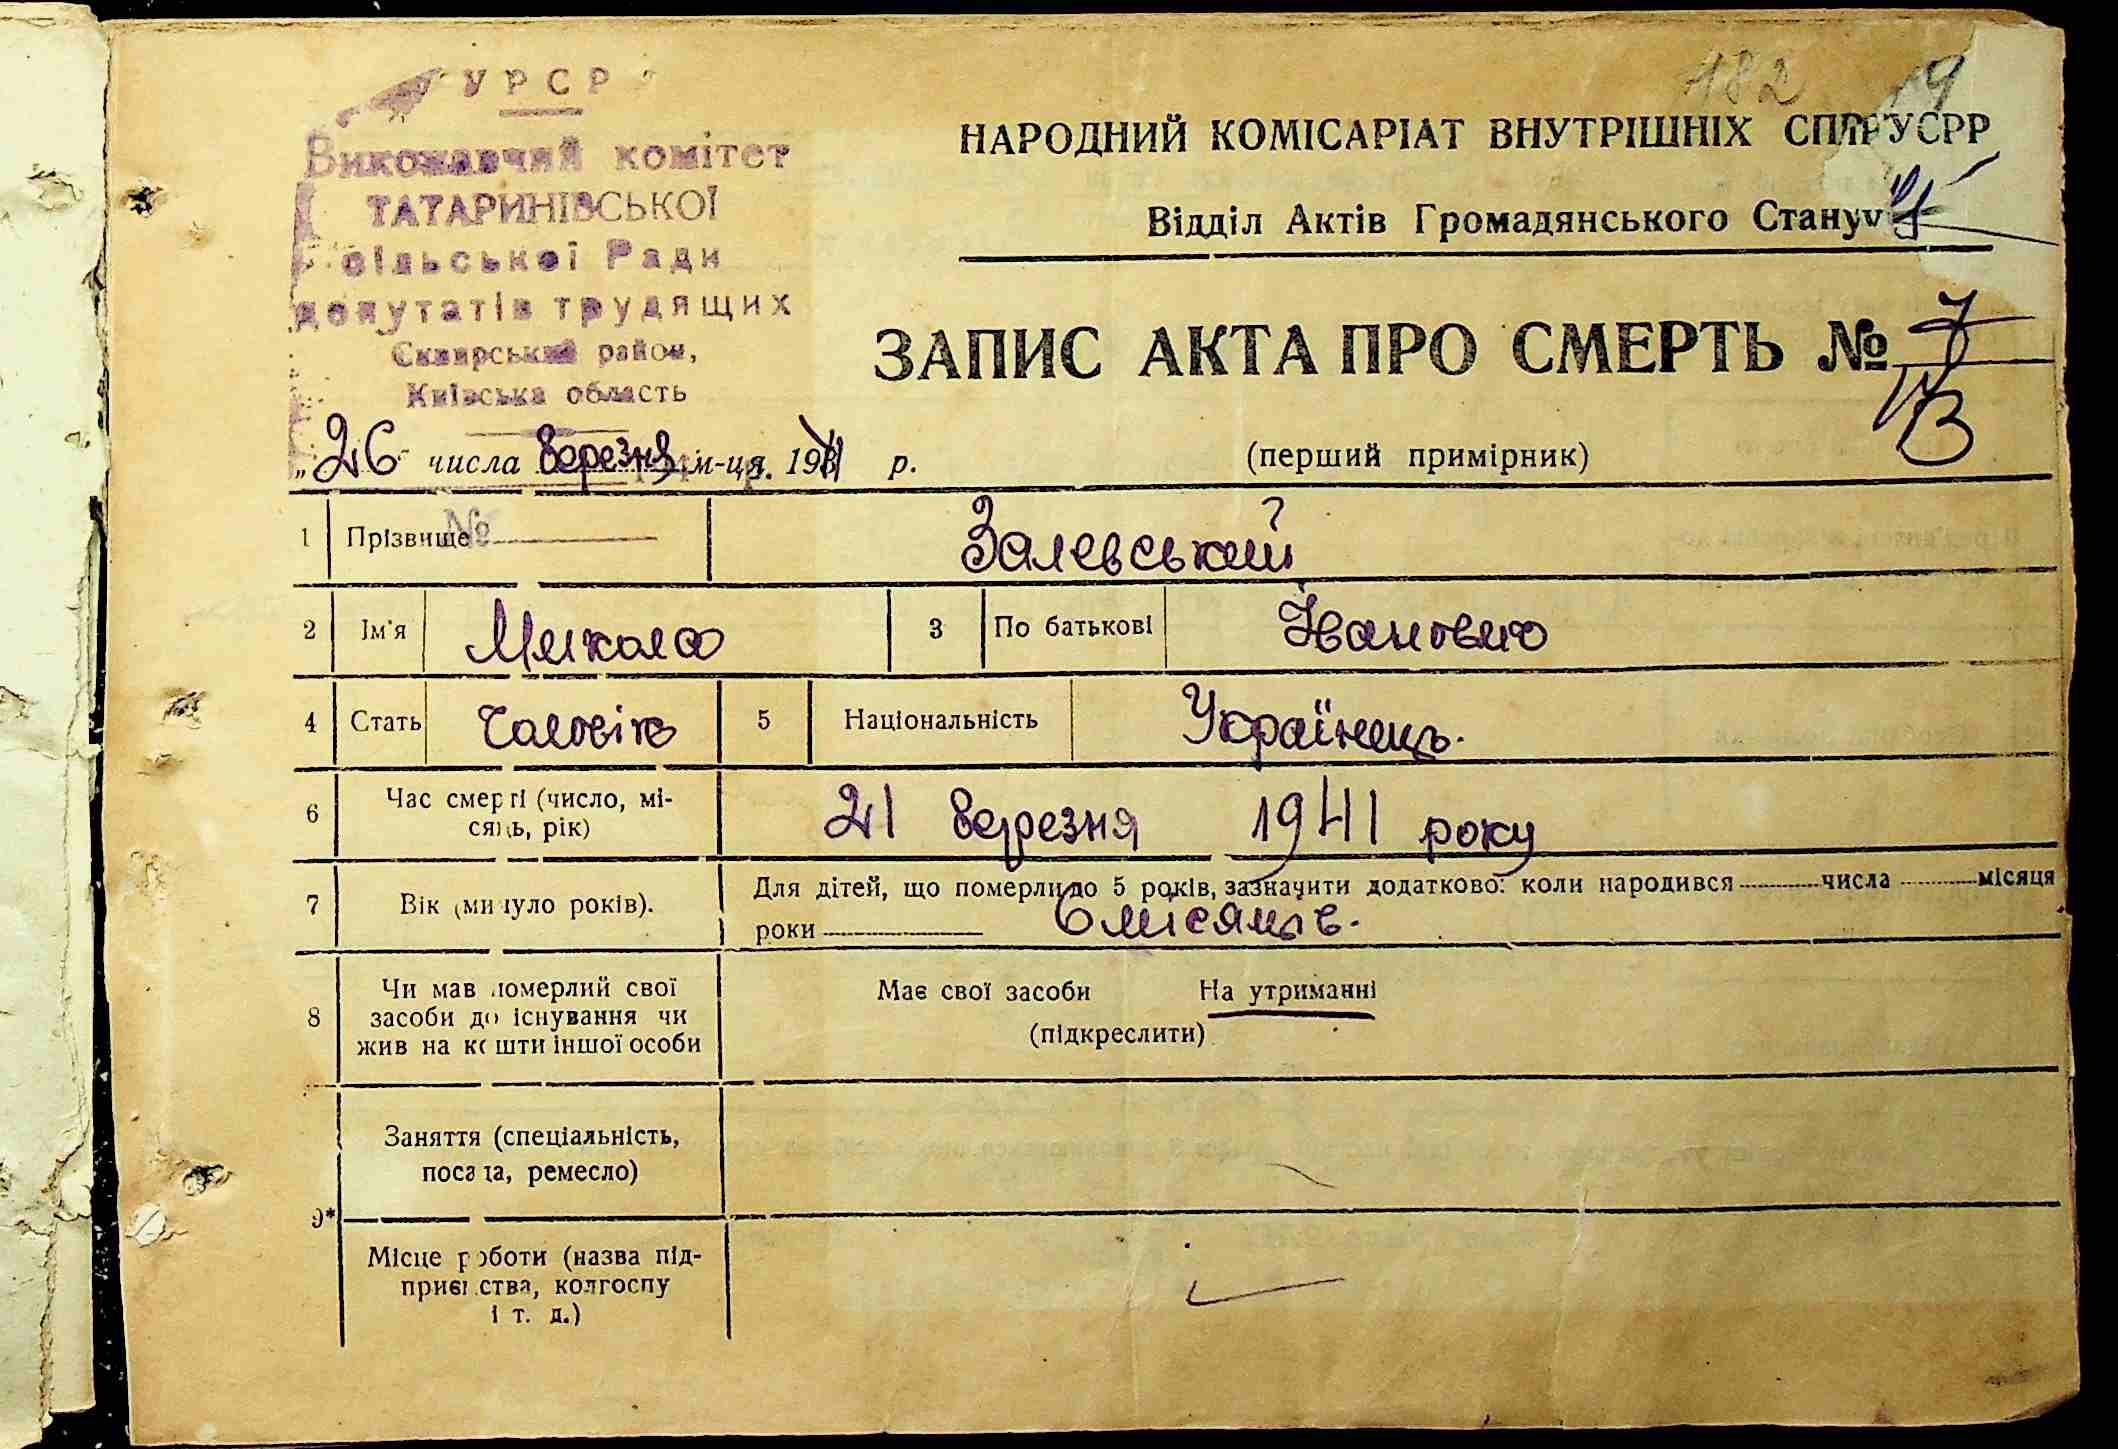 УРСР
Виконавчий комітет
ТАТАРИНІВСЬКОЇ
сільської Ради
депутатів трудящих
Сквирський район,
Київська область
182 19
НАРОДНИЙ КОМІСАРІАТ ВНУТРІШНІХ СПРАВ УСРР
Відділ Актів Громадянського Стану
ЗАПИС АКТА ПРО СМЕРТЬ № 7
„26 числа березня м-ця. 1941 р.
(перший примірник)
№
1 Прізвище Залевський
2 Ім'я Микола 3 По батькові Іванович
4 Стать Чоловік 5 Національність Українець.
6 Час смерті (число, мі-
сяць, рік) 21 березня 1941 року
7 Вік (минуло років). Для дітей, що померли до 5 років, зазначити додатково: коли народився числа місяця
роки 6 місяців.
8 Чи мав померлий свої
засоби до існування чи
жив на кошти іншої особи
Має свої засоби На утриманні
(підкреслити)
9*
Заняття (спеціальність,
посада, ремесло)
Місце роботи (назва під-
приємства, колгоспу
і т. д.)